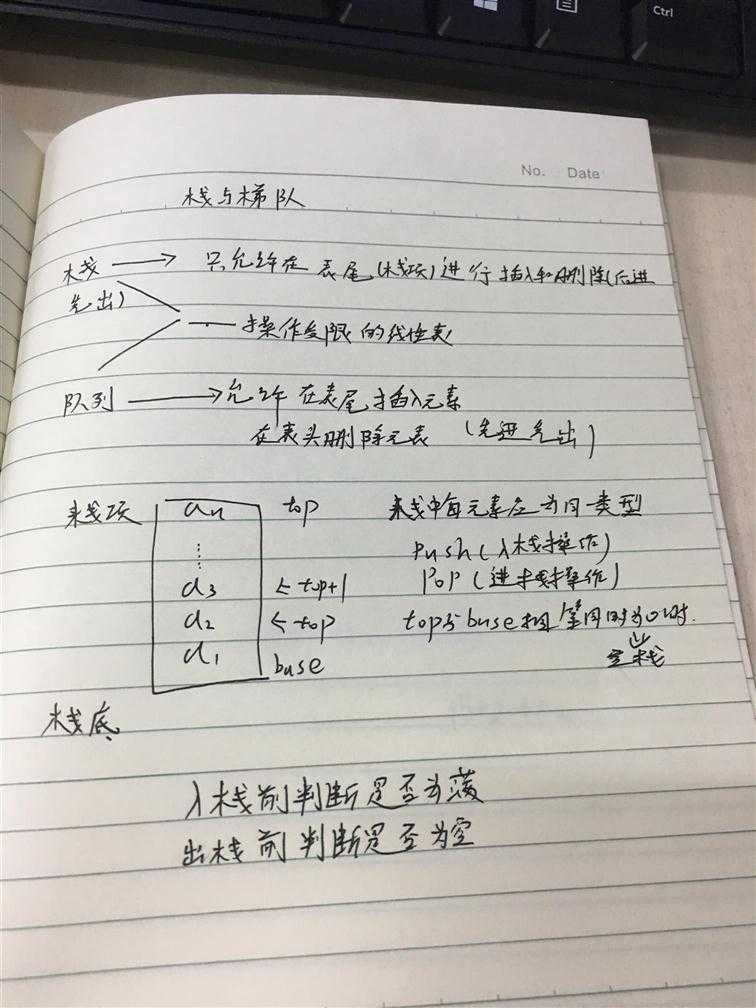 Ctrl
No. Date
栈与梯队
栈 → 只允许在表尾(栈顶)进行插入和删除(后进
先出)
操作受限的线性表
队列 → 允许在表尾插入元素
在表头删除元素 (先进先出)
栈顶 an top 栈中每元素应为同一类型
⋮ push(入栈操作)
a3 ← top+1 pop(进栈操作)
a2 ← top top与base相等同时为0时.
a1 base 空栈
栈底
入栈前判断是否为满
出栈前判断是否为空